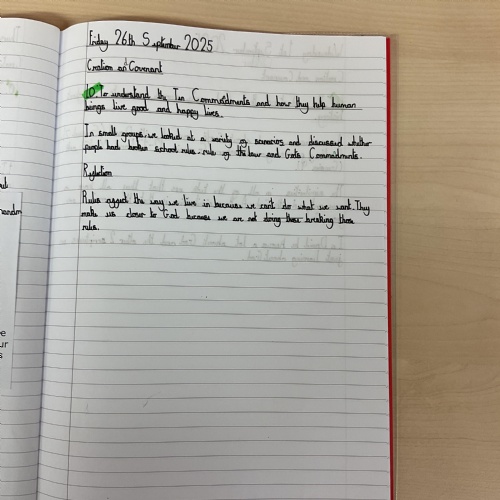 Friday 26th September 2025
Creation and Covenant
LO: To understand the Ten Commandments and how they help human
beings live good and happy lives.
In small groups, we looked at a variety of scenarios and discussed whether
people had broken school rules, rule of the law and Gods Commandments.
Reflection
Rules affect the way we live in because we can't do what we want. They
make us closer to God because we are not doing these breaking these
rules.